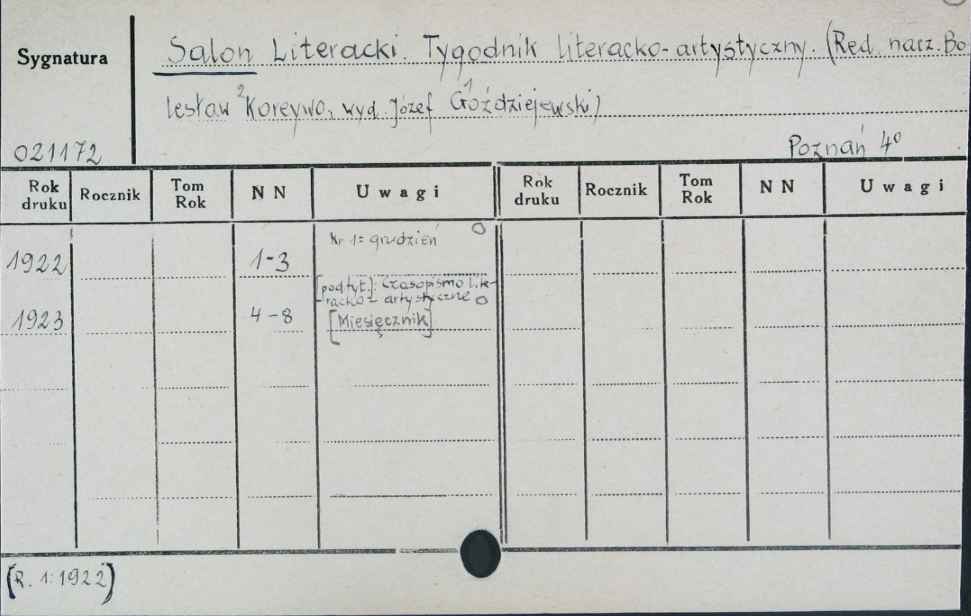 Sygnatura
Salon Literacki. Tygodnik literacko-artystyczny. (Red. nacz. Bo
lesław 2 Koreywo, wyd. Józef 1 Goździejewski)
021172
Poznań 4°
Rok druku Rocznik Tom Rok NN Uwagi Rok druku Rocznik Tom Rok NN Uwagi
Nr 1 = grudzień
1922 1-3
[podtyt.]: Czasopismo lite-
racko - artystyczne
1923 4-8 [Miesięcznik]
(R. 1: 1922)